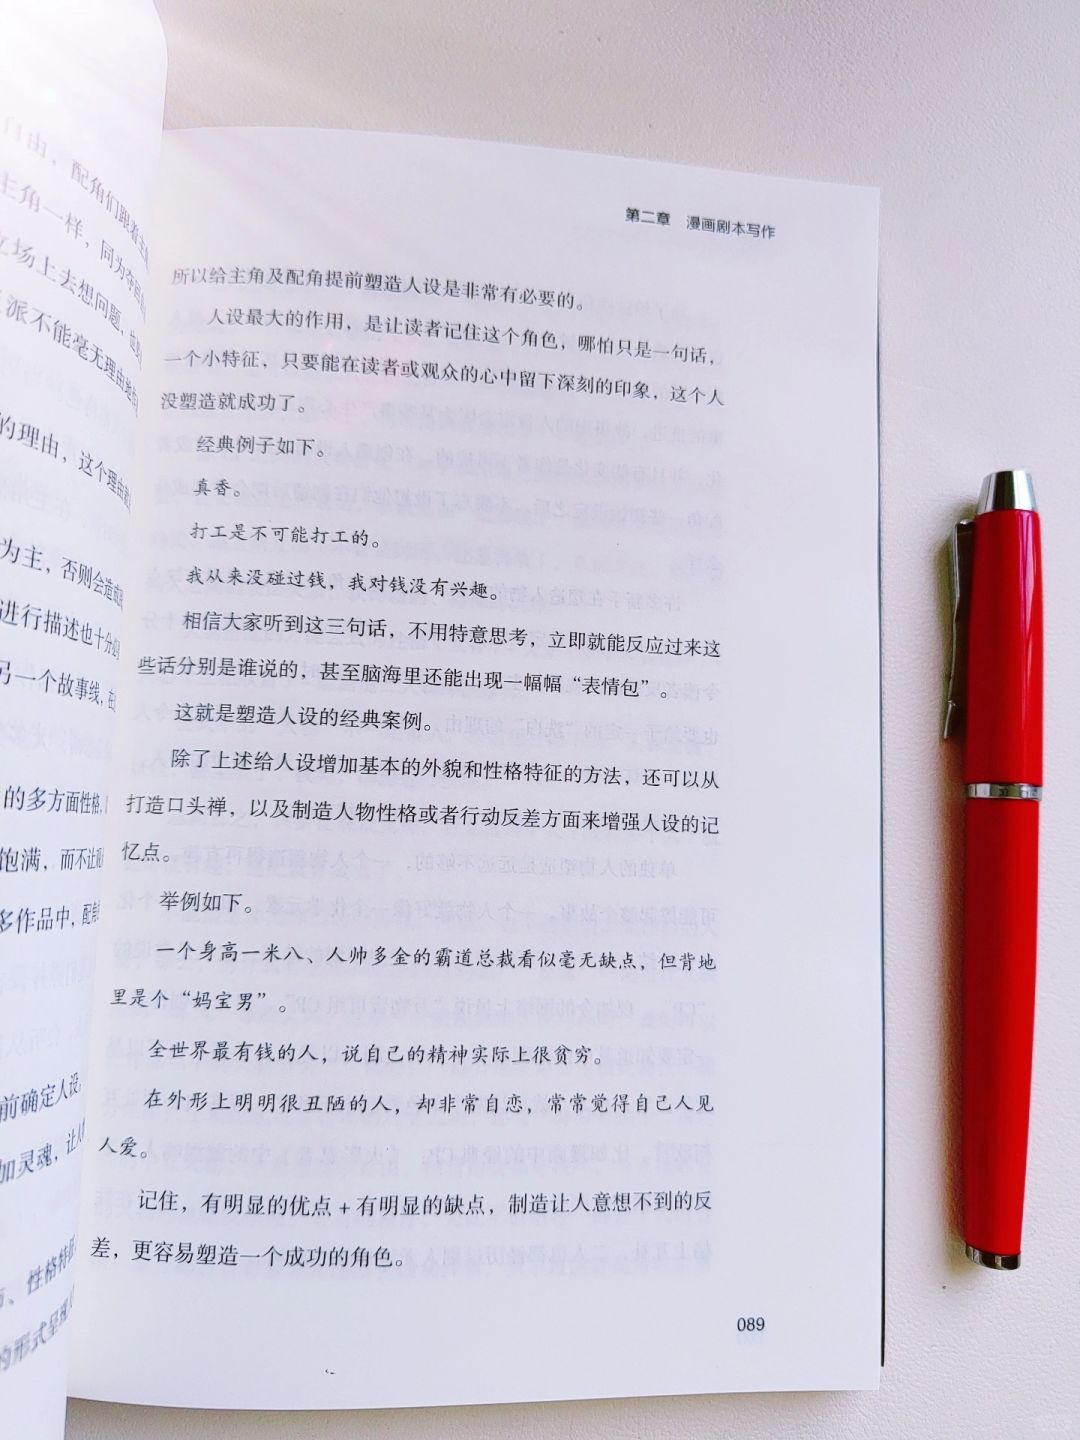 自由，配角们跟着主
主角一样，同为夺
立场上去想问题，
派不能毫无理由地
的理由，这个理由
为主，否则会造成
进行描述也十分
另一个故事线，在
的多方面性格，
饱满，而不让
多作品中，配角
前确定人设，
加灵魂，让人
、性格特
的形式呈现
第二章 漫画剧本写作
所以给主角及配角提前塑造人设是非常有必要的。
人设最大的作用，是让读者记住这个角色，哪怕只是一句话，
一个小特征，只要能在读者或观众的心中留下深刻的印象，这个人
没塑造就成功了。
经典例子如下。
真香。
打工是不可能打工的。
我从来没碰过钱，我对钱没有兴趣。
相信大家听到这三句话，不用特意思考，立即就能反应过来这
些话分别是谁说的，甚至脑海里还能出现一幅幅“表情包”。
这就是塑造人设的经典案例。
除了上述给人设增加基本的外貌和性格特征的方法，还可以从
打造口头禅，以及制造人物性格或者行动反差方面来增强人设的记
忆点。
举例如下。
一个身高一米八、人帅多金的霸道总裁看似毫无缺点，但背地
里是个“妈宝男”。
全世界最有钱的人，说自己的精神实际上很贫穷。
在外形上明明很丑陋的人，却非常自恋，常常觉得自己人见
人爱。
记住，有明显的优点+有明显的缺点，制造让人意想不到的反
差，更容易塑造一个成功的角色。
089